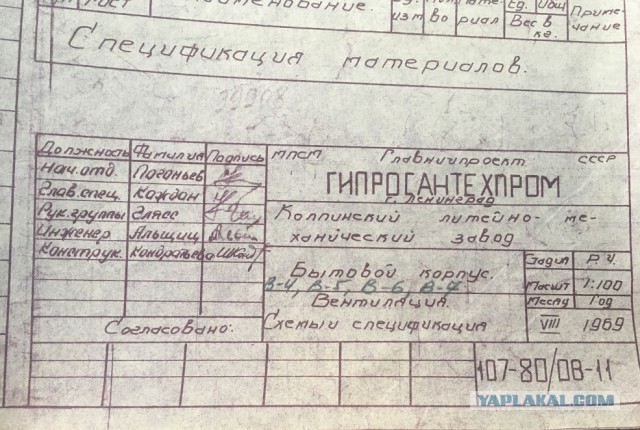 Лист
Наименование.
Ед. Общ
изм во риал Вес в Приме-
кг. чание
Спецификация материалов.
Должность Фамилия Подпись
Нач.отд. Погоньев
Глав.спец. Каждан
Рук.группы Глясс
Инженер Яльщиц
Конструк. Кондратьева
Согласовано:
МПСМ Главниипроект СССР
ГИПРОСАНТЕХПРОМ
г. Ленинград
Колпинский литейно-ме-
ханический завод
Бытовой корпус.
В-4, В-5, В-6, В-7
Вентиляция.
Схемы и спецификация
Стадия Р.Ч.
Масшт 1:100
Месяц Год
VIII 1969
107-80/08-11
YAPLAKAL.COM